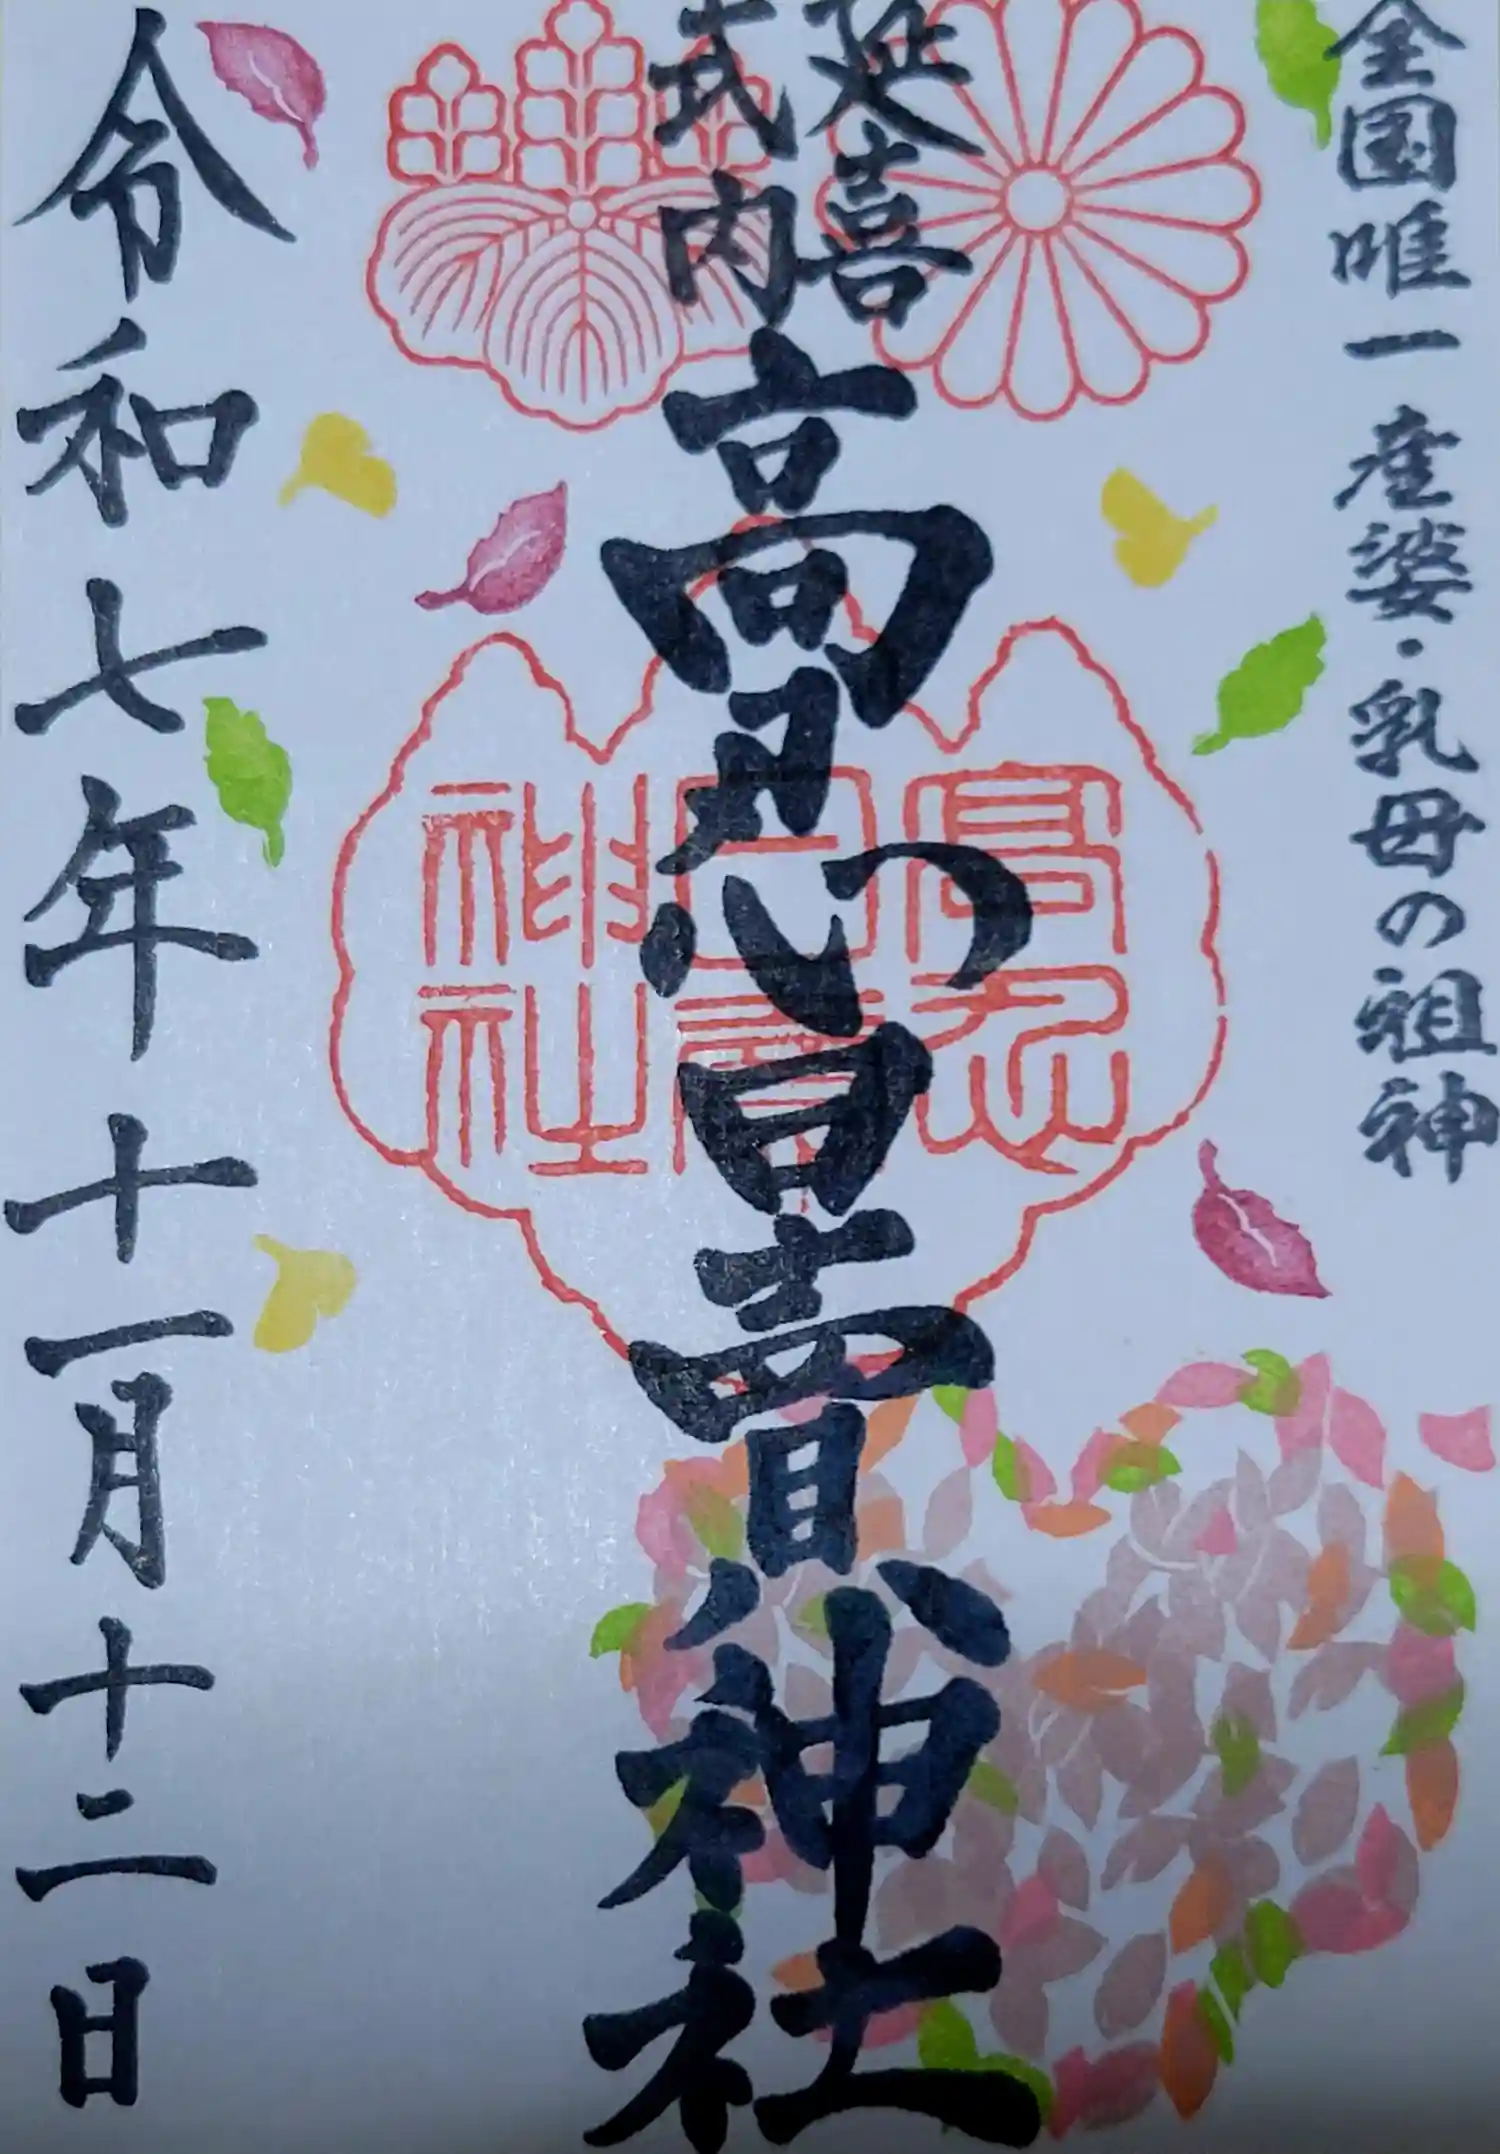 全国唯一産婆・乳母の祖神
延喜
式内
高忍日賣神社
高忍
日賣
神社
令和七年十一月十二日